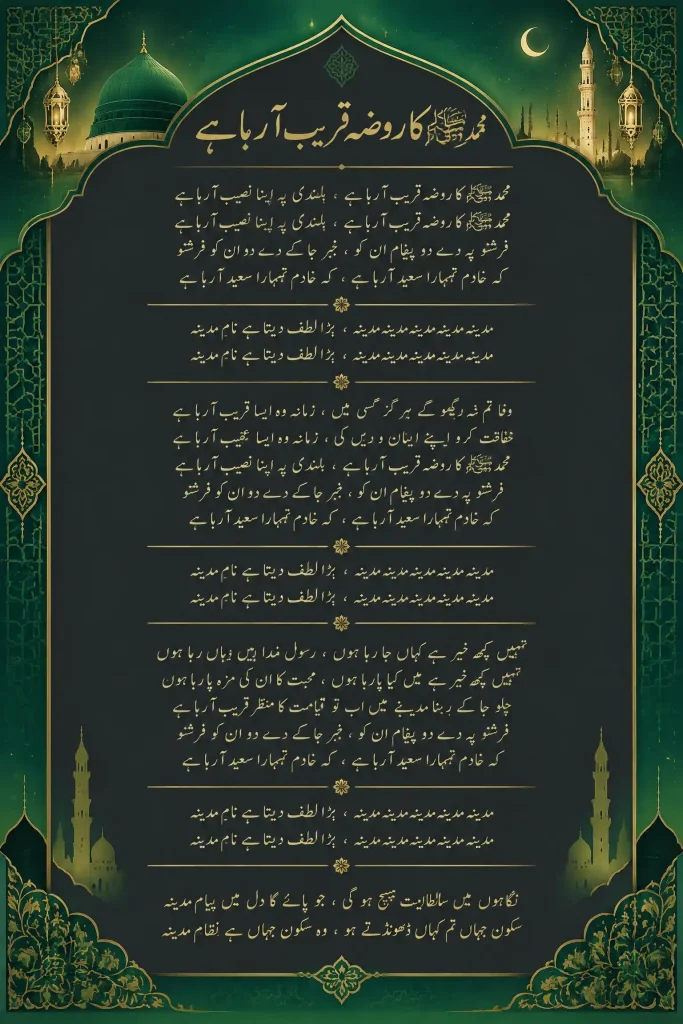 محمد ﷺ کا روضہ قریب آ رہا ہے
محمد ﷺ کا روضہ قریب آ رہا ہے ، بلندی پہ اپنا نصیب آ رہا ہے
محمد ﷺ کا روضہ قریب آ رہا ہے ، بلندی پہ اپنا نصیب آ رہا ہے
فرشتو یہ دے دو پیغام ان کو ، خبر جا کے دے دو ان کو فرشتو
کہ خادم تمہارا سعید آ رہا ہے ، کہ خادم تمہارا سعید آ رہا ہے
مدینہ مدینہ مدینہ مدینہ مدینہ ، بڑا لطف دیتا ہے نامِ مدینہ
مدینہ مدینہ مدینہ مدینہ مدینہ ، بڑا لطف دیتا ہے نامِ مدینہ
وفا تم نہ دیکھو گے ہر گز کسی میں ، زمانہ وہ ایسا قریب آ رہا ہے
حفاظت کرو اپنے ایمان و دیں کی ، زمانہ وہ ایسا عجیب آ رہا ہے
محمد ﷺ کا روضہ قریب آ رہا ہے ، بلندی پہ اپنا نصیب آ رہا ہے
فرشتو یہ دے دو پیغام ان کو ، خبر جا کے دے دو ان کو فرشتو
کہ خادم تمہارا سعید آ رہا ہے ، کہ خادم تمہارا سعید آ رہا ہے
مدینہ مدینہ مدینہ مدینہ مدینہ ، بڑا لطف دیتا ہے نامِ مدینہ
مدینہ مدینہ مدینہ مدینہ مدینہ ، بڑا لطف دیتا ہے نامِ مدینہ
تمہیں کچھ خبر ہے کہاں جا رہا ہوں ، رسول خدا ہیں وہاں رہا ہوں
تمہیں کچھ خبر ہے میں کیا پا رہا ہوں ، محبت کا ان کی مزہ پا رہا ہوں
چلو جا کے رہنا مدینے میں اب تو قیامت کا منظر قریب آ رہا ہے
فرشتو یہ دے دو پیغام ان کو ، خبر جا کے دے دو ان کو فرشتو
کہ خادم تمہارا سعید آ رہا ہے ، کہ خادم تمہارا سعید آ رہا ہے
مدینہ مدینہ مدینہ مدینہ مدینہ ، بڑا لطف دیتا ہے نامِ مدینہ
مدینہ مدینہ مدینہ مدینہ مدینہ ، بڑا لطف دیتا ہے نامِ مدینہ
نگاہوں میں ہیچ ہو گی ، جو پائے گا دل میں پیام مدینہ
سکون جہاں تم کہاں ڈھونڈتے ہو ، وہ سکون جہاں ہے نظام مدینہ